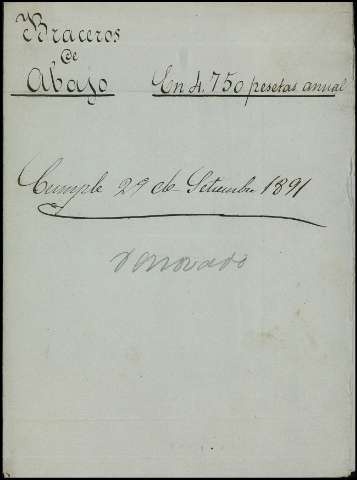 Braceros
de
Abajo
En 4.750 pesetas anual
Cumple 29 de Setiembre 1891